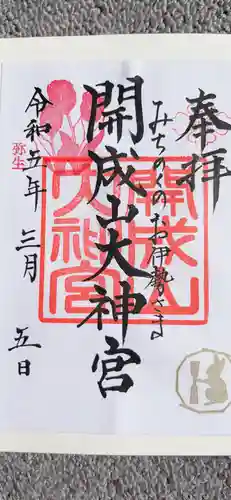 奉拝
みちのくのお伊勢さま
開成山大神宮
開成山大神宮
弥生
令和五年三月五日